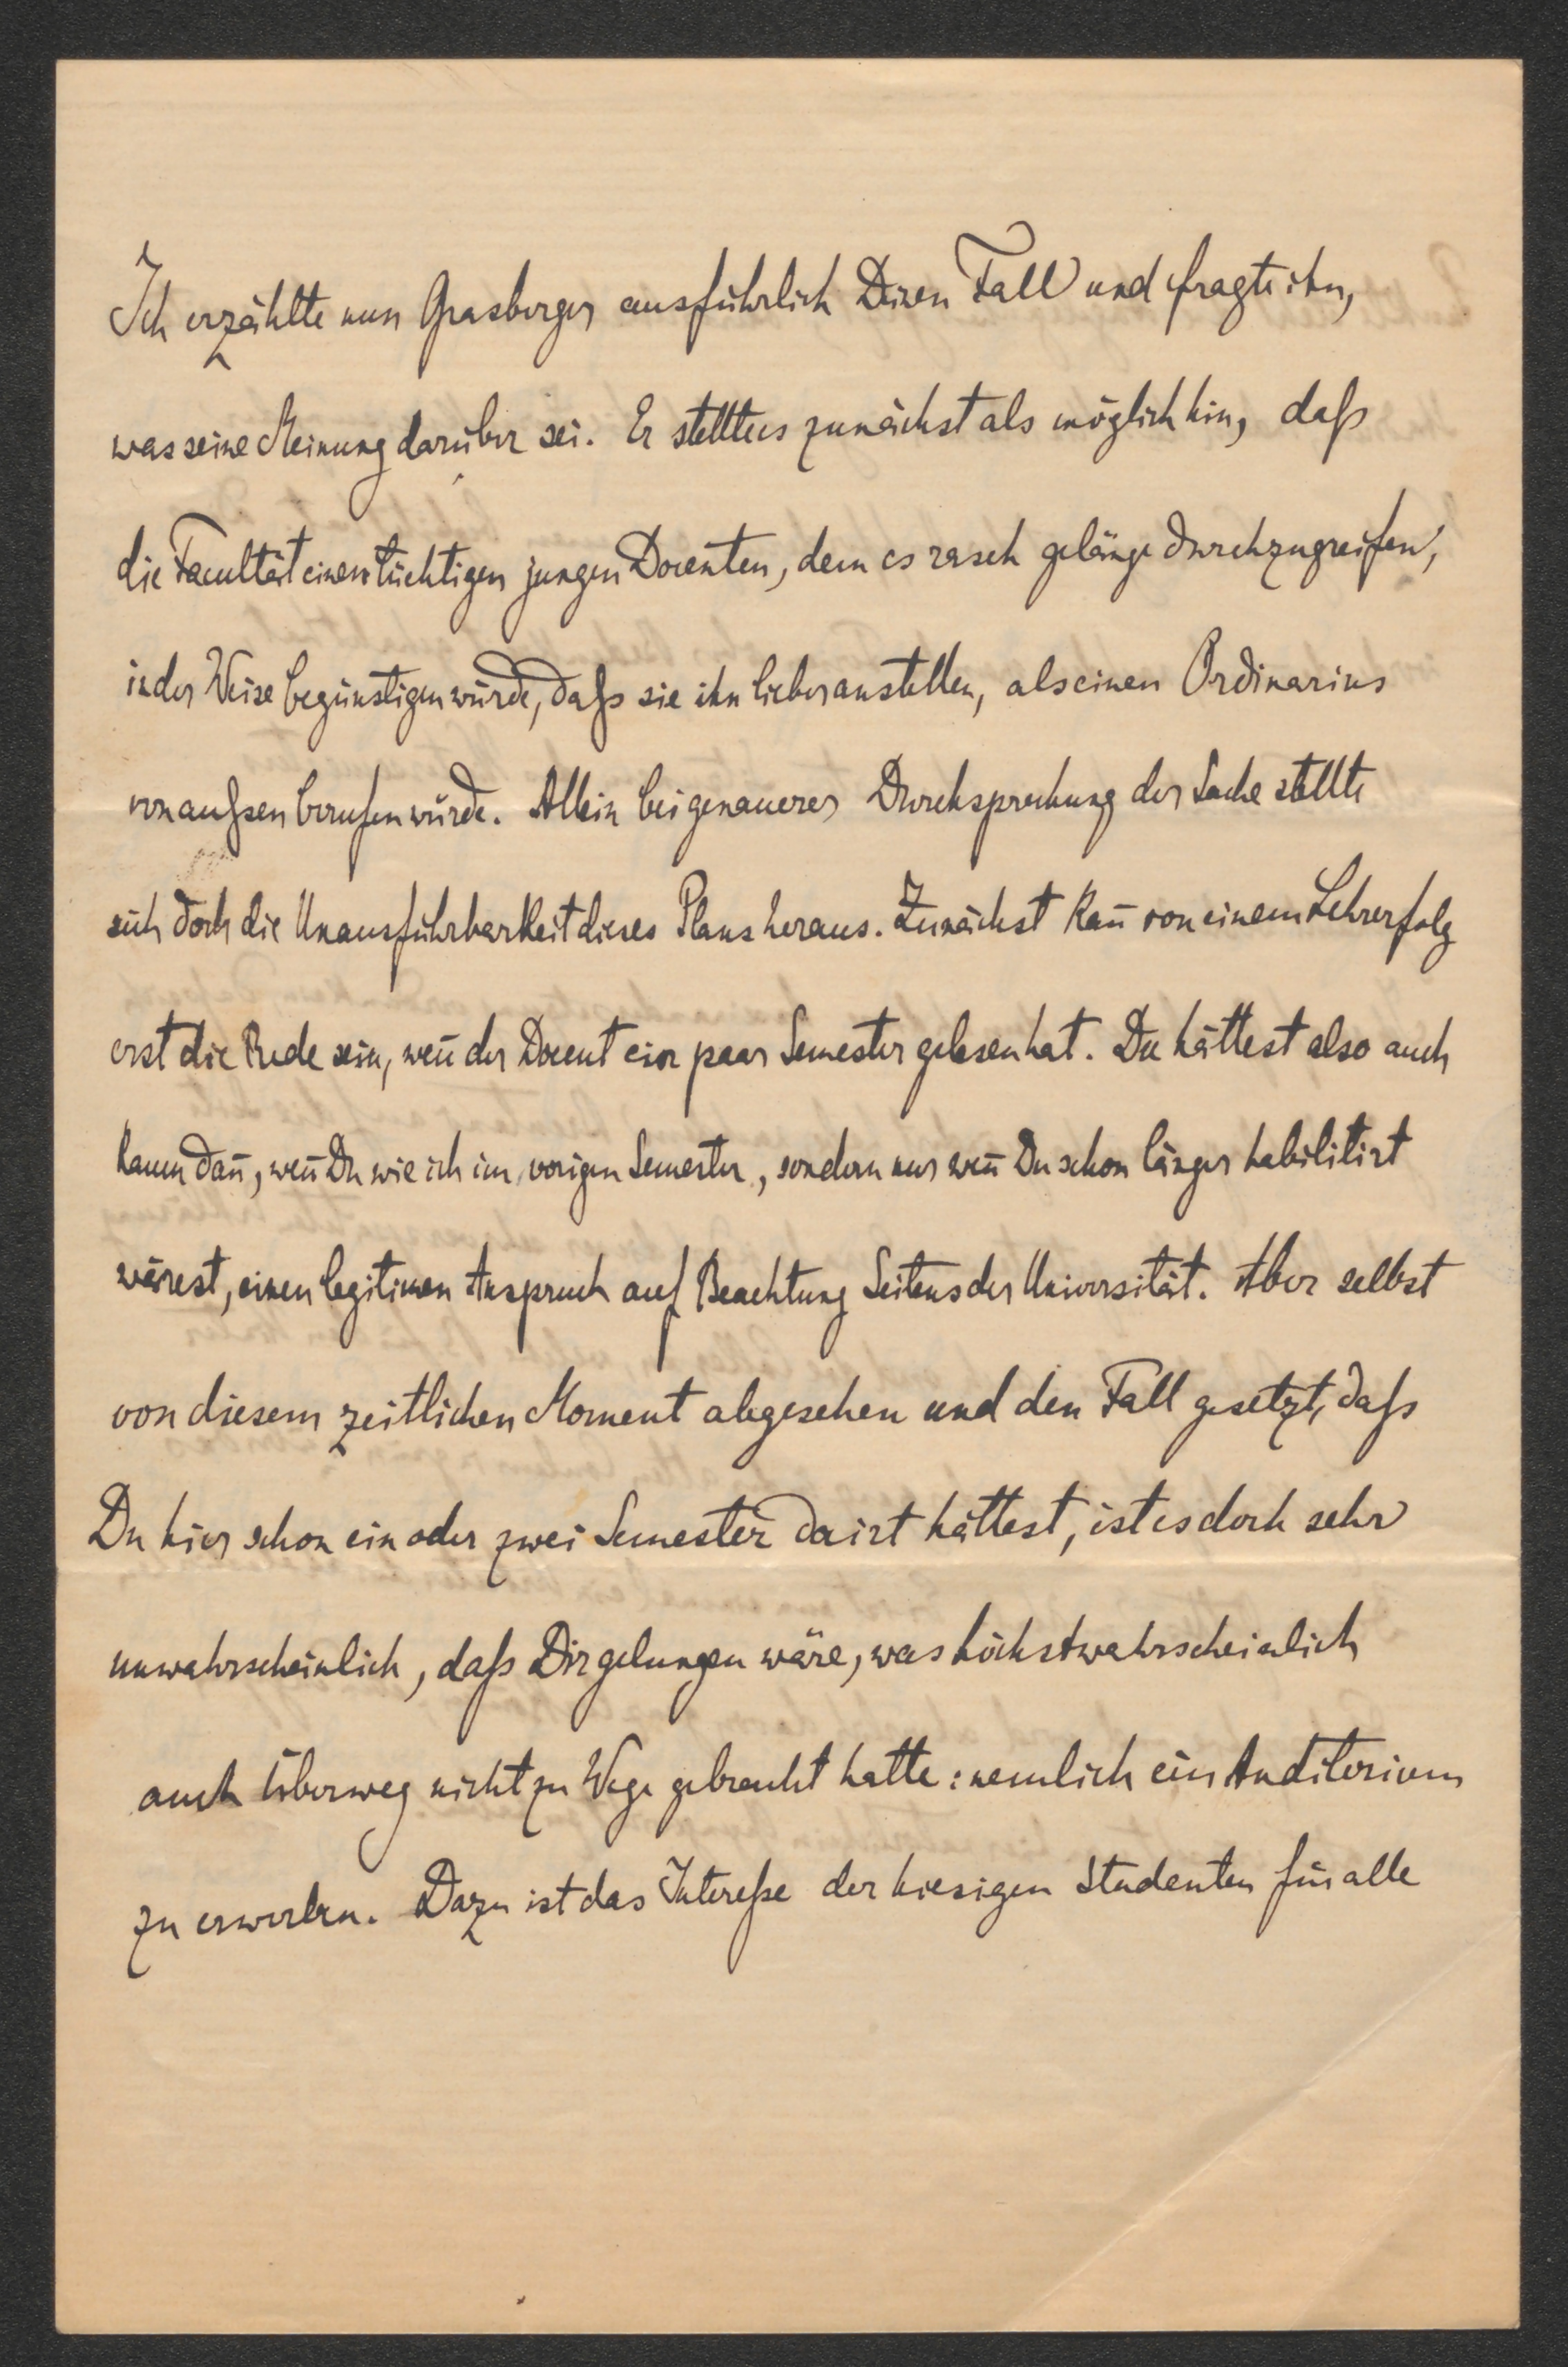 Ich erzählte nun Grasberger ausführlich Deinen Fall und fragte ihn,
was seine Meinung darüber sei. Er stellte es zunächst als möglich hin, daß
die Facultät einen tüchtigen jungen Docenten, dem es rasch gelänge durchzugreifen,
in der Weise begünstigen würde, daß sie ihn lieber anstellen, als einen Ordinarius
von außen berufen würde. Allein bei genauerer Durchsprechung der Sache stellte
sich doch die Unausführbarkeit dieses Plans heraus. Zunächst kan̄ von einem Lehrerfolg
erst die Rede sein, wen̄ der Docent ein paar Semester gelesen hat. Du hättest also auch
kaum dan̄, wen̄ Du wie ich im vorigen Semester, sondern nur wen̄ Du schon länger habilitirt
wärest, einen legitimen Anspruch auf Beachtung Seitens der Universität. Aber selbst
von diesem zeitlichen Moment abgesehen und den Fall gesetzt, daß
Du hier schon ein oder zwei Semester docirt hättest, ist es doch sehr
unwahrscheinlich, daß Dir gelungen wäre, was höchstwahrscheinlich
auch Überweg nicht zu Wege gebracht hatte: nemlich ein Auditorium
zu erwerben. Dazu ist das Interesse der hiesigen Studenten für alle